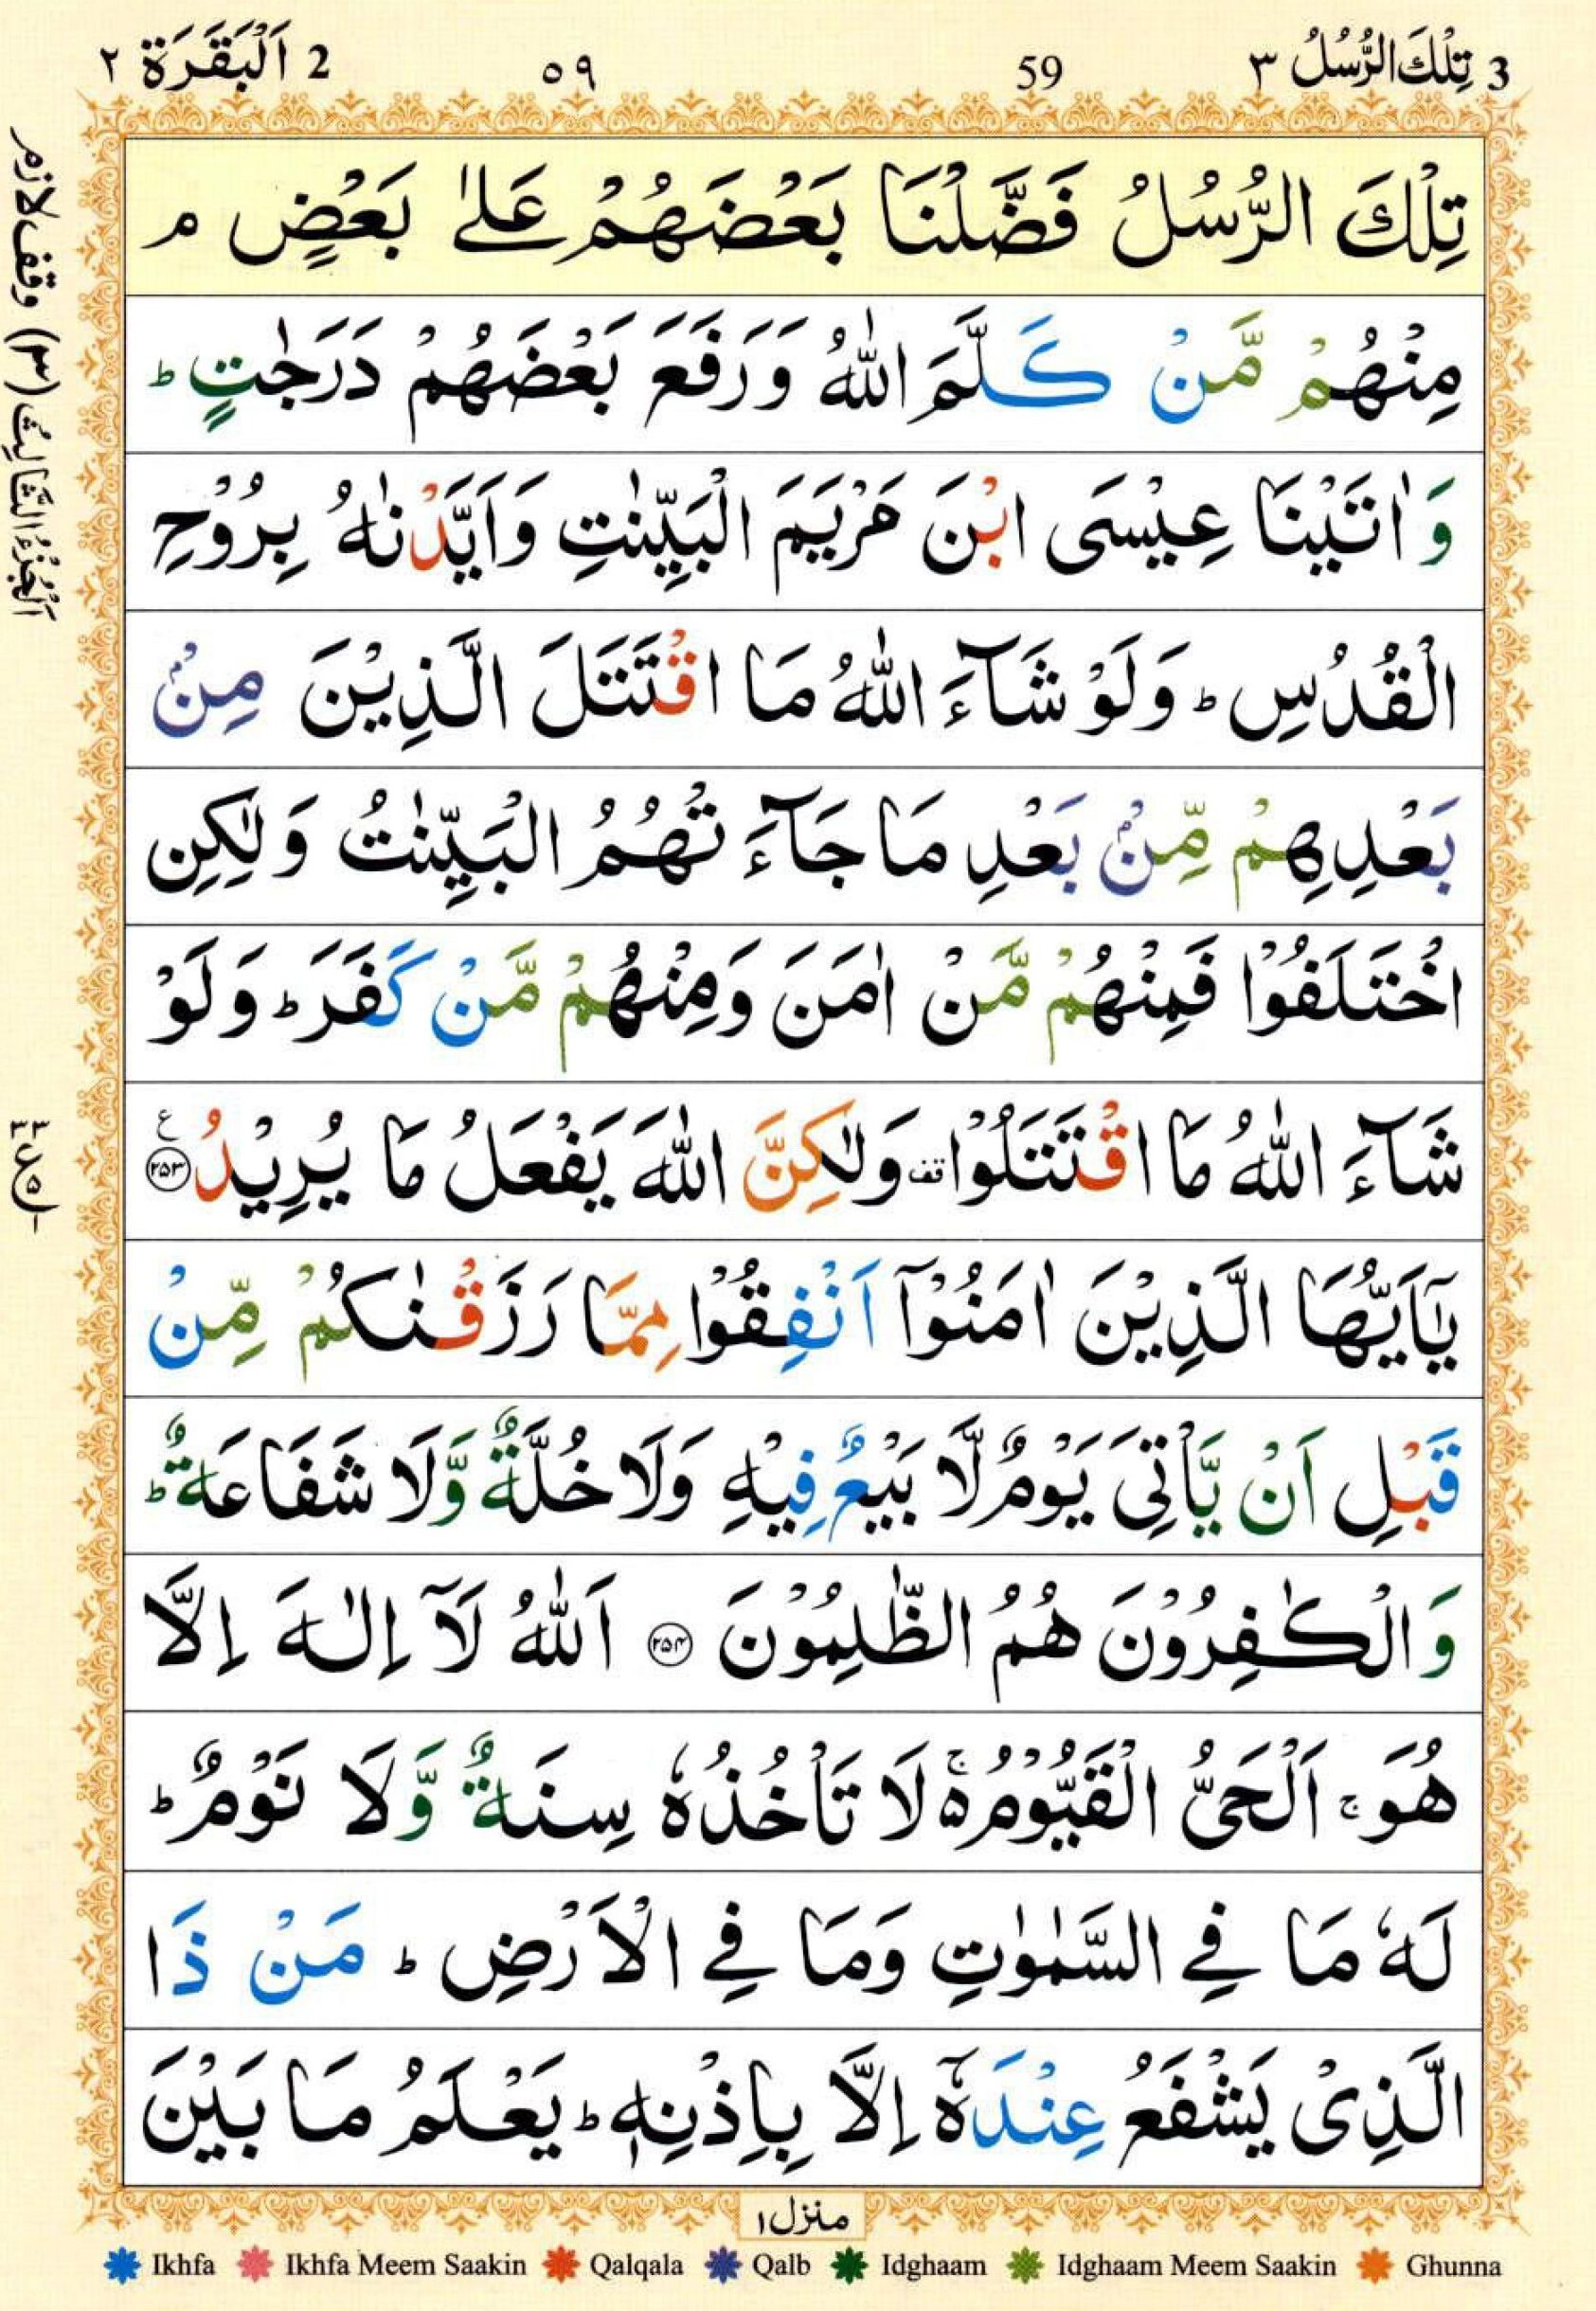 3 تِلْكَ الرُّسُلُ ٣ 59 ٥٩ 2 اَلْبَقَرَة ٢
تِلْكَ الرُّسُلُ فَضَّلْنَا بَعْضَهُمْ عَلٰى بَعْضٍ ۘ
مِنْهُمْ مَّنْ كَلَّمَ اللّٰهُ وَرَفَعَ بَعْضَهُمْ دَرَجٰتٍ ؕ
وَاٰتَيْنَا عِيْسَى ابْنَ مَرْيَمَ الْبَيِّنٰتِ وَاَيَّدْنٰهُ بِرُوْحِ
الْقُدُسِ ؕ وَلَوْ شَآءَ اللّٰهُ مَا اقْتَتَلَ الَّذِيْنَ مِنْۢ
بَعْدِهِمْ مِّنْۢ بَعْدِ مَا جَآءَتْهُمُ الْبَيِّنٰتُ وَلٰكِنِ
اخْتَلَفُوْا فَمِنْهُمْ مَّنْ اٰمَنَ وَمِنْهُمْ مَّنْ كَفَرَ ؕ وَلَوْ
شَآءَ اللّٰهُ مَا اقْتَتَلُوْا قف وَلٰكِنَّ اللّٰهَ يَفْعَلُ مَا يُرِيْدُ ع ۝۲۵۳
يٰۤاَيُّهَا الَّذِيْنَ اٰمَنُوْۤا اَنْفِقُوْا مِمَّا رَزَقْنٰكُمْ مِّنْ
قَبْلِ اَنْ يَّاْتِىَ يَوْمٌ لَّا بَيْعٌ فِيْهِ وَلَا خُلَّةٌ وَّلَا شَفَاعَةٌ ؕ
وَالْكٰفِرُوْنَ هُمُ الظّٰلِمُوْنَ ۝۲۵۴ اَللّٰهُ لَاۤ اِلٰهَ اِلَّا
هُوَ ۚ اَلْحَىُّ الْقَيُّوْمُ ۵ۚ لَا تَاْخُذُهٗ سِنَةٌ وَّلَا نَوْمٌ ؕ
لَهٗ مَا فِى السَّمٰوٰتِ وَمَا فِى الْاَرْضِ ؕ مَنْ ذَا
الَّذِىْ يَشْفَعُ عِنْدَهٗۤ اِلَّا بِاِذْنِهٖ ؕ يَعْلَمُ مَا بَيْنَ
منزل ١
اَلْجُزْءُ الثَّالِثُ (٣) وقف لازم
Ikhfa Ikhfa Meem Saakin Qalqala Qalb Idghaam Idghaam Meem Saakin Ghunna